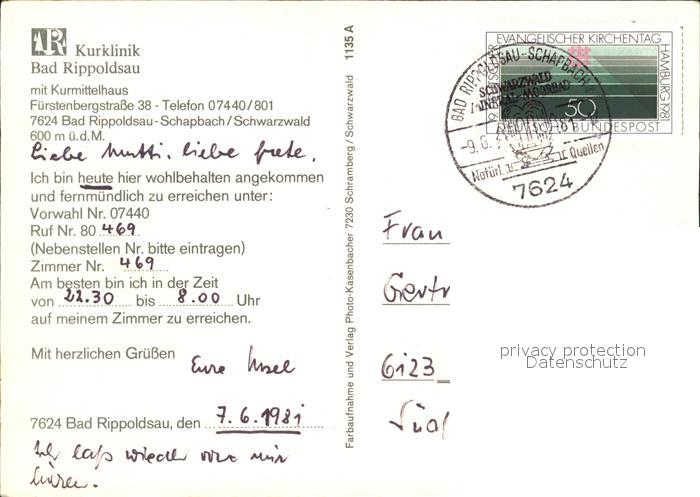 Kurklinik
Bad Rippoldsau
mit Kurmittelhaus
Fürstenbergstraße 38 - Telefon 07440/801
7624 Bad Rippoldsau-Schapbach/Schwarzwald
600 m ü.d.M.
Liebe Mutti, liebe Grete,
Ich bin heute hier wohlbehalten angekommen
und fernmündlich zu erreichen unter:
Vorwahl Nr. 07440
Ruf Nr. 80 469
(Nebenstellen Nr. bitte eintragen)
Zimmer Nr. 469
Am besten bin ich in der Zeit
von 22.30 bis 8.00 Uhr
auf meinem Zimmer zu erreichen.
Mit herzlichen Grüßen
Eure Ursel
7624 Bad Rippoldsau, den 7.6.1981
Ich laß wieder von mir
hören.
Farbaufnahme und Verlag Photo-Kasenbacher 7230 Schramberg/Schwarzwald 1135 A
EVANGELISCHER KIRCHENTAG
HAMBURG 1981
50
BUNDESPOST
BAD RIPPOLDSAU-SCHAPBACH 1
SCHWARZWALD
MINERAL-MOORBAD
Natürl. Quellen
7624
Frau
Gertr
6123
Süd
privacy protection
Datenschutz